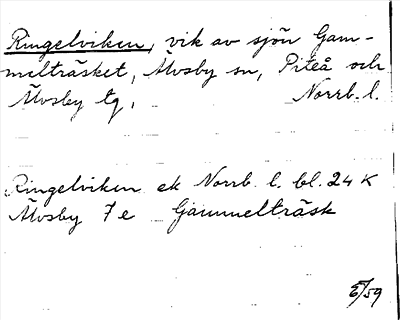 Ringelviken, vik av sjön Gam-
melträsket, Älvsby sn, Piteå och
Älvsby tg, Norrb. l.
Ringelviken ek Norrb. l. bl. 24 K
Älvsby 7 e Gammelträsk
/59